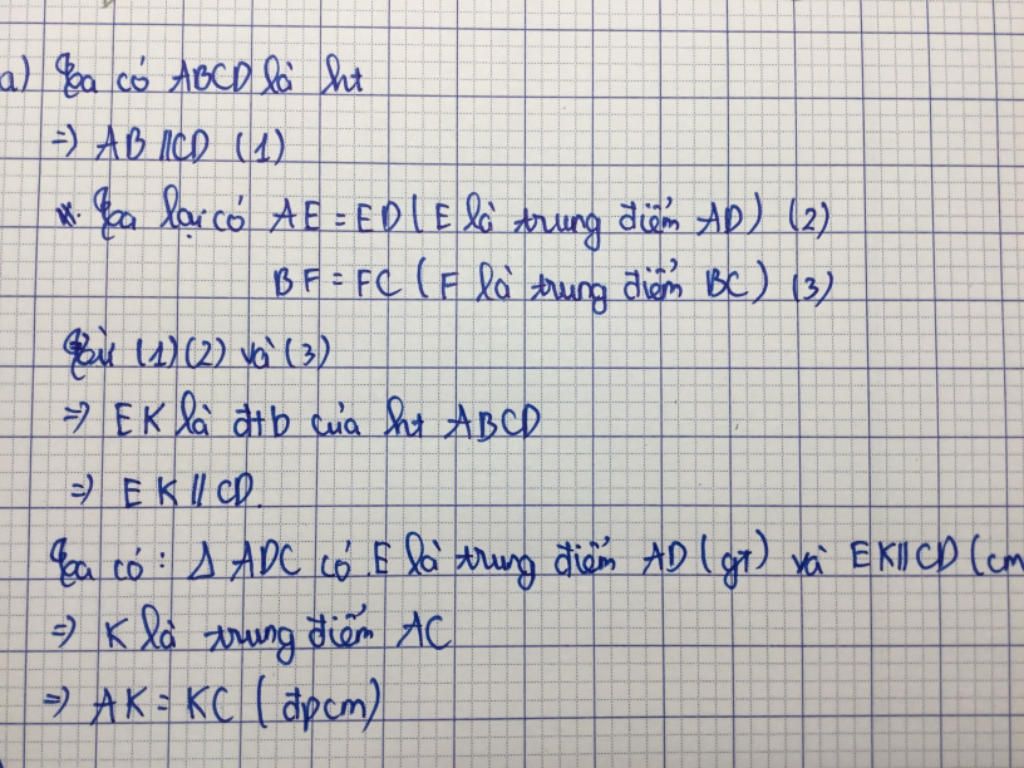 a) Ta có ABCD là ht
=> AB // CD (1)
*. Ta lại có AE = ED ( E là trung điểm AD ) (2)
BF = FC ( F là trung điểm BC ) (3)
Từ (1) (2) và (3)
=> EK là đtb của ht ABCD
=> EK // CD.
Ta có : Δ ADC có E là trung điểm AD ( gt ) và EK // CD ( cm
=> K là trung điểm AC
=> AK = KC ( đpcm )